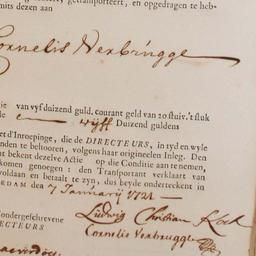 , getransporteert, en opgedragen te heb-
mits dezen aan
Cornelis Verbrugge
van vyf duizend guld. courant geld van 20 stuiv. 't stuk
vyff Duizend guldens
et d'Inroepinge, die de DIRECTEURS, in tyd en wyle
nden te behooren, volgens haar origineelen Inleg. Den
t bekent dezelve Actie op die Conditie aan te nemen,
komen genoegen : den Transportant verklaart van
voldaan en betaalt te zyn, dus beyde onderteekent in
EDAM den 7 Januarij 1721
ondergeschrevene
ECTEURS
Ludwig Christian Kock
Cornelis Verbrugge